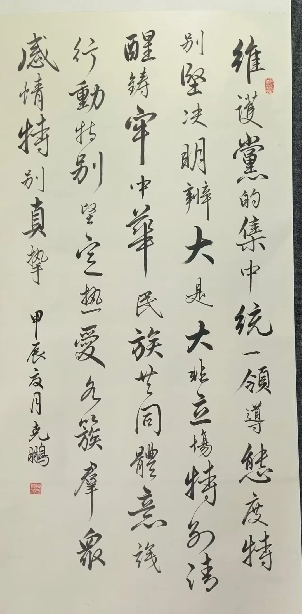 維護黨的集中統一領導態度特
别堅决明辨大是大非立場特别清
醒鑄牢中華民族共同體意識
行動特别堅定熱愛各簇羣衆
感情特别真摯 甲辰夏月克鵬